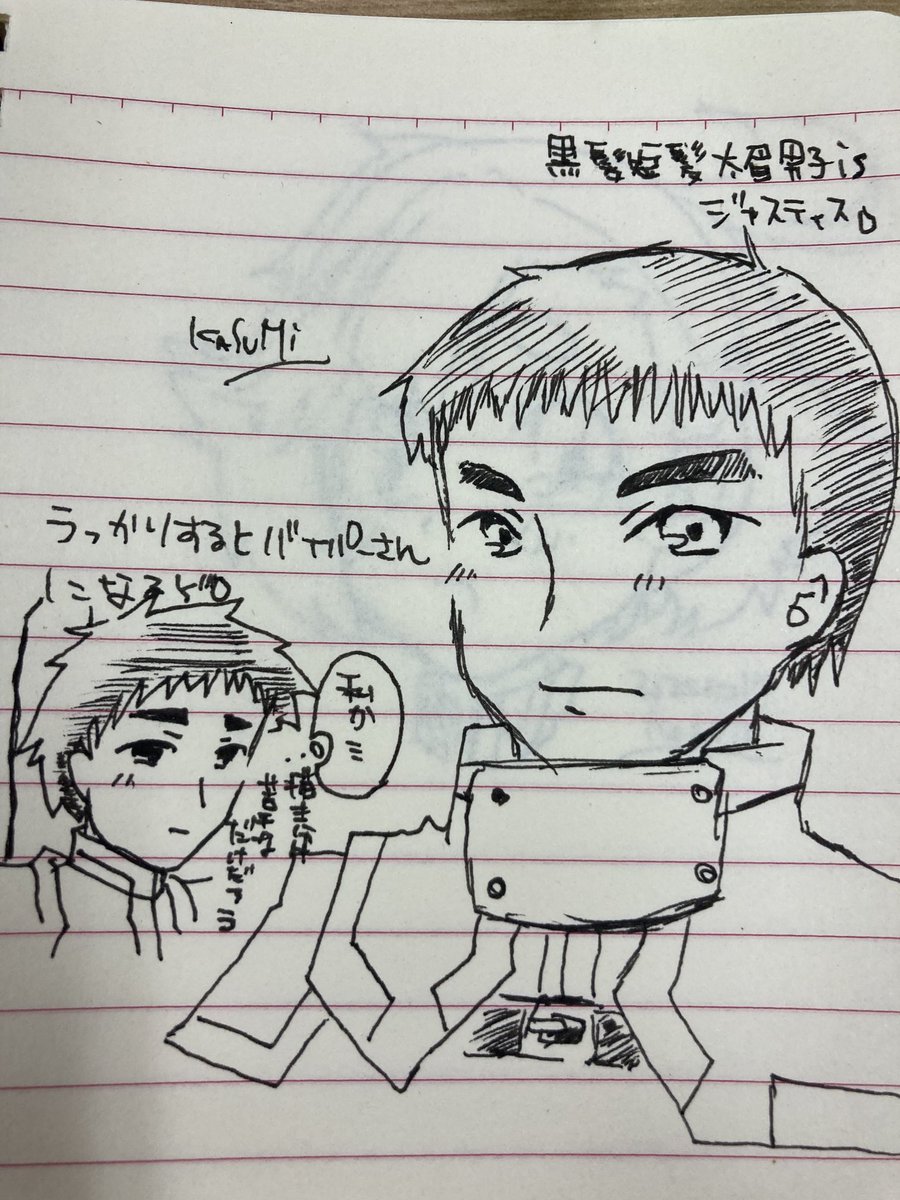 黒髪短髪太眉男子is
ジャスティス。
KASUMi
うっかりするとバーパーさん
になるぞ。
私が…
描き分け
苦手な
だけだァ…